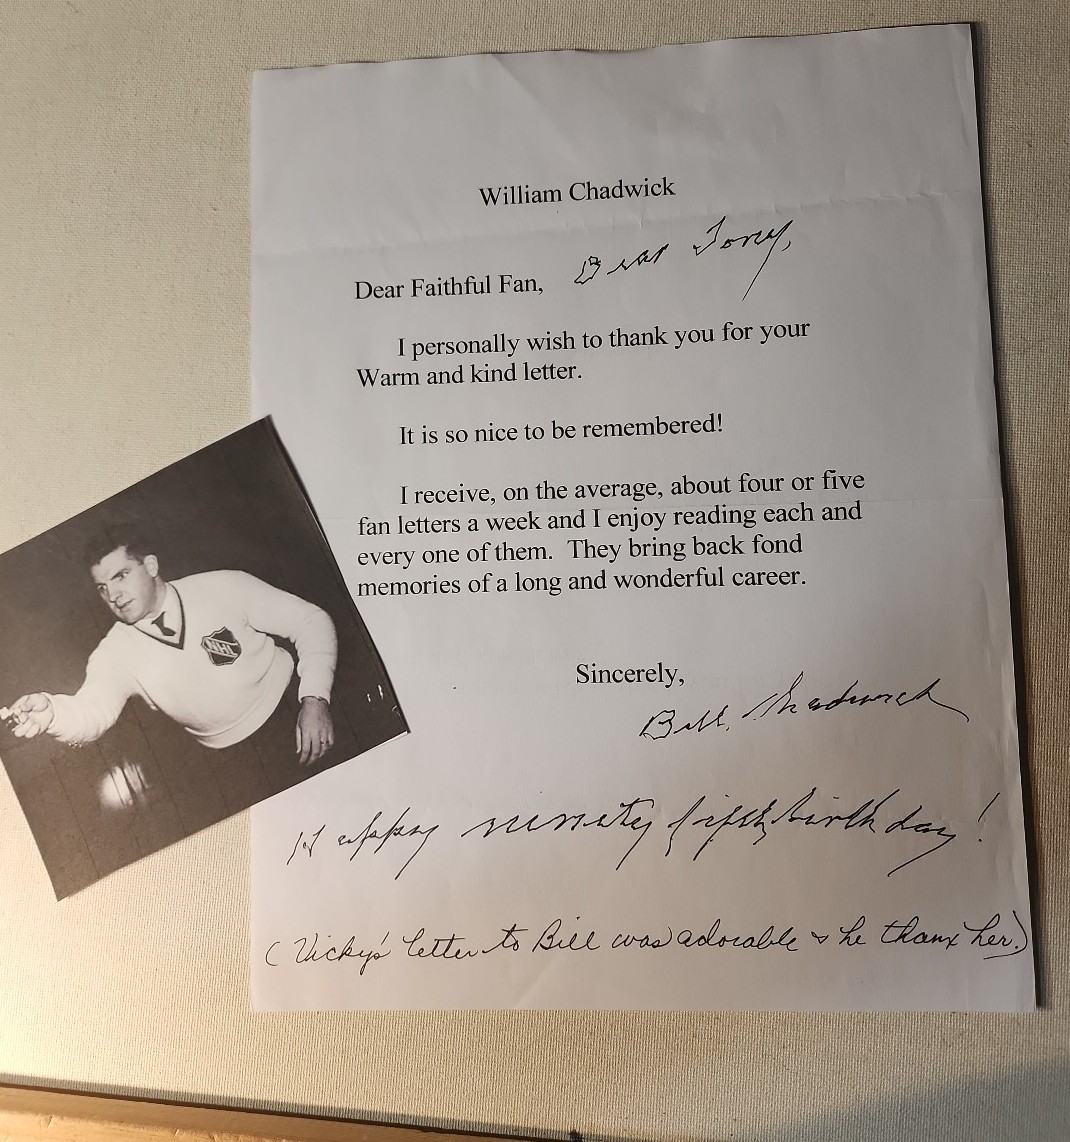 William Chadwick
Dear Faithful Fan, Dear Tony,
I personally wish to thank you for your
Warm and kind letter.
It is so nice to be remembered!
I receive, on the average, about four or five
fan letters a week and I enjoy reading each and
every one of them. They bring back fond
memories of a long and wonderful career.
Sincerely,
Bill Chadwick
Happy ninety fifth birthday!
(Vicky's letter to Bill was adorable & he thanx her.)
NHL